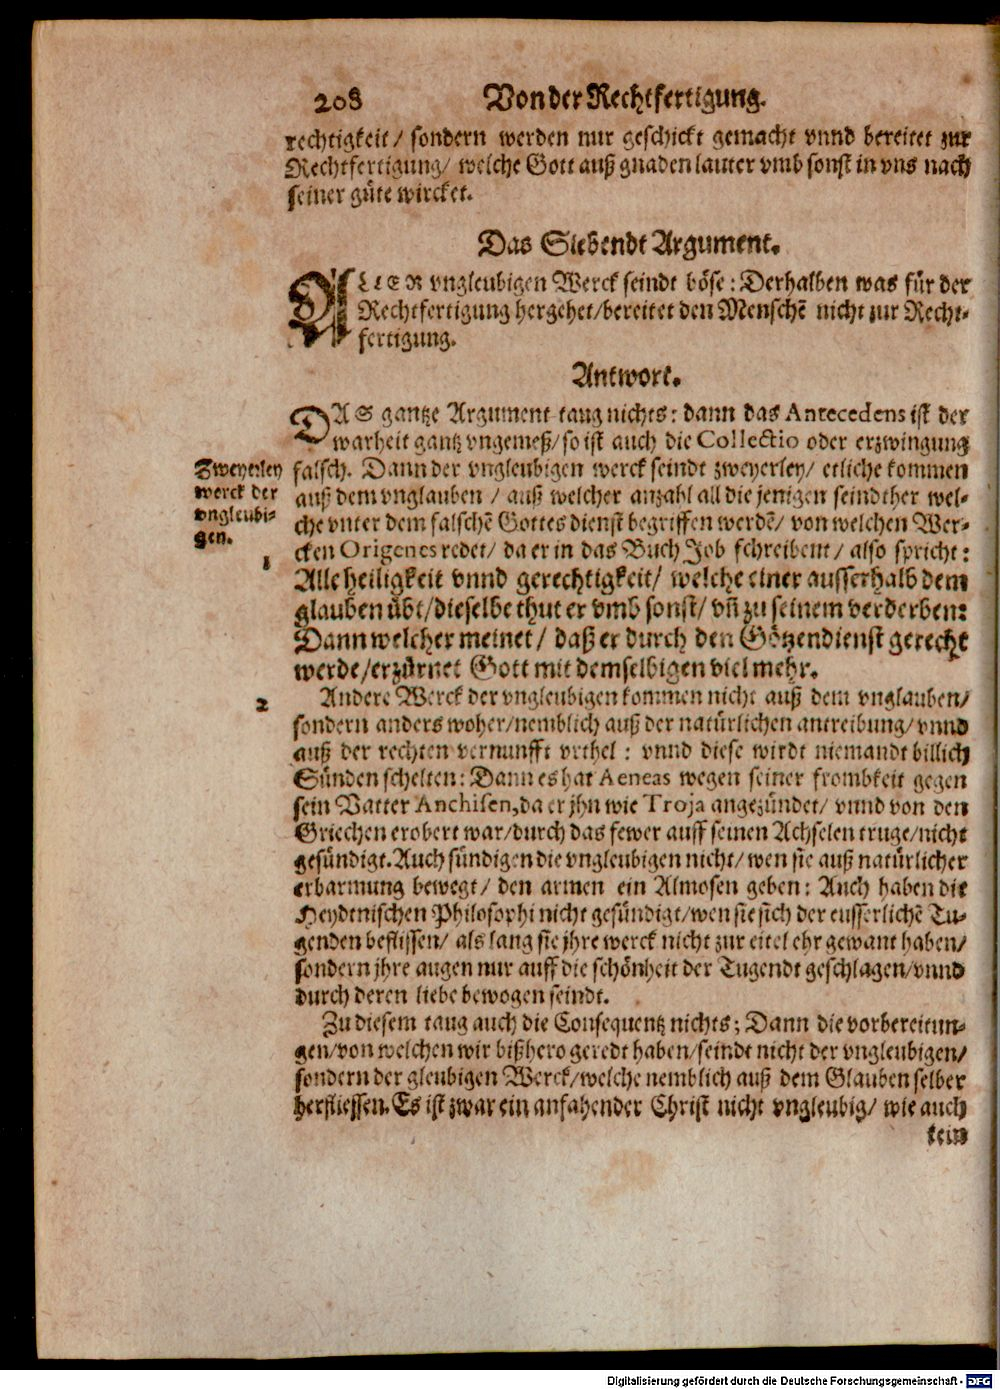 208 Von der Rechtfertigung.
rechtigkeit/ sondern werden nur geschickt gemacht vnnd bereitet zur
Rechtfertigung/ welche Gott auß gnaden lauter vmb sonst in vns nach
seiner güte wircket.
Das Siebendt Argument.
ALLER vngleubigen Werck seindt böse: Derhalben was für der
Rechtfertigung hergehet/bereitet den Menschẽ nicht zur Recht-
fertigung.
Antwort.
DAS gantze Argument taug nichts: dann das Antecedens ist der
warheit gantz vngemeß/so ist auch die Collectio oder erzwingung
falsch. Dann der vngleubigen werck seindt zweyerley/ etliche kommen
Zweyerley
werck der
vngleubi-
gen.
auß dem vnglauben / auß welcher anzahl all die jenigen seindt her wel-
che vnter dem falschẽ Gottesdienst begriffen werdẽ/ von welchen Wer-
cken Origenes redet/ da er in das Buch Job schreibent/ also spricht:
1
Alle heiligkeit vnnd gerechtigkeit/ welche einer ausserhalb dem
glauben übt/dieselbe thut er vmb sonst/ vñ zu seinem verderben:
Dann welcher meinet/ daß er durch den Götzendienst gerecht
werde/erzürnet Gott mit demselbigen viel mehr.
2
Andere Werck der vngleubigen kommen nicht auß dem vnglauben/
sondern anders woher/nemblich auß der natürlichen antreibung/ vnnd
auß der rechten vernunfft vrthel: vnnd diese wirdt niemandt billich
Sünden schelten: Dann es hat Aeneas wegen seiner frombkeit gegen
sein Vatter Anchisen, da er jhn wie Troja angezündet/ vnnd von den
Griechen erobert war/durch das fewer auff seinen Achselen truge/nicht
gesündigt. Auch sündigen die vngleubigen nicht/ wen sie auß natürlicher
erbarmung bewegt/ den armen ein Almosen geben: Auch haben die
Heydtnischen Philosophi nicht gesündigt/wen sie sich der eusserlichẽ Tu-
genden beflissen/ als lang sie jhre werck nicht zur eitel ehr gewant haben/
sondern jhre augen nur auff die schönheit der Tugendt geschlagen/vnnd
durch deren liebe bewogen seindt.
Zu diesem taug auch die Consequentz nichts; Dann die vorbereitun-
gen/von welchen wir bißhero geredt haben/seindt nicht der vngleubigen/
sondern der gleubigen Werck/welche nemblich auß dem Glauben selber
herfliessen. Es ist zwar ein anfahender Christ nicht vngleubig/ wie auch
kein
Digitalisierung gefördert durch die Deutsche Forschungsgemeinschaft - DFG